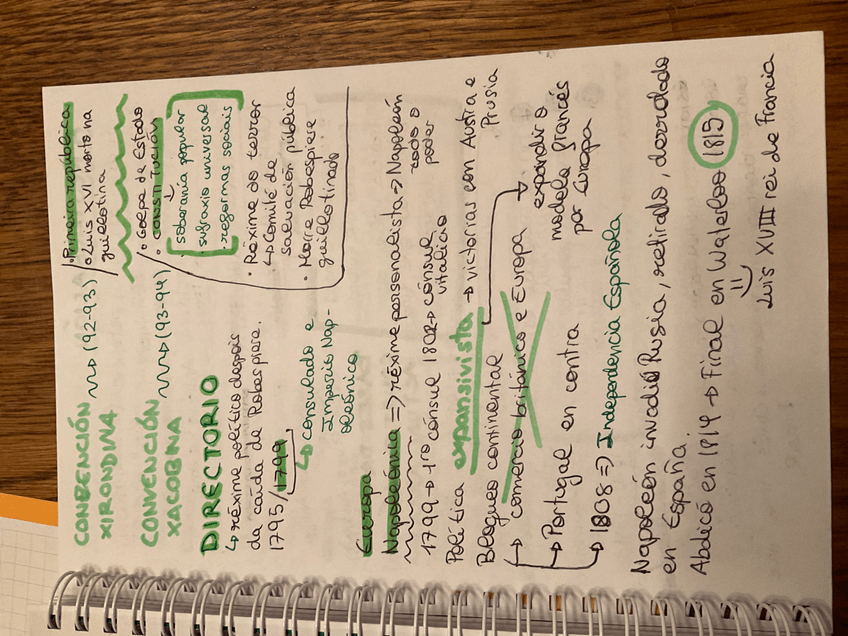 CONBENCIÓN
XIRONDINA
~~> (92-93)
• Primeira república
• Luis XVI morto na
guillotina
CONVENCIÓN
XACOBINA
~~> (93-94)
• Golpe de Estado
• CONSTITUCIÓN
↓
• soberanía popular
• sufraxio universal
• reformas sociais
• Réxime do terror
↳ Comité de
salvación pública
• Morre Robespiere
guillotinado
DIRECTORIO
↳ réxime político depois
da caída de Robespiere.
1795/1799
↳ consulado e
Imperio Nap-
oleónico
Europa
Napoleónica => réxime personalista => Napoleón
todo o
poder
1799 → 1ro cónsul 1802 → cónsul
vitalicio
Política expansivista → victorias con Austria e
Prusia
Bloqueo continental
↳ comercio británico e Europa
expandir o
modelo francés
por Europa
→ Portugal en contra
→ 1808 => Independencia Española
Napoleón invadiu Rusia, retirado, derrotado
en España.
Abdicó en 1814 → Final en Waterloo 1815
Luis XVIII rei de Francia